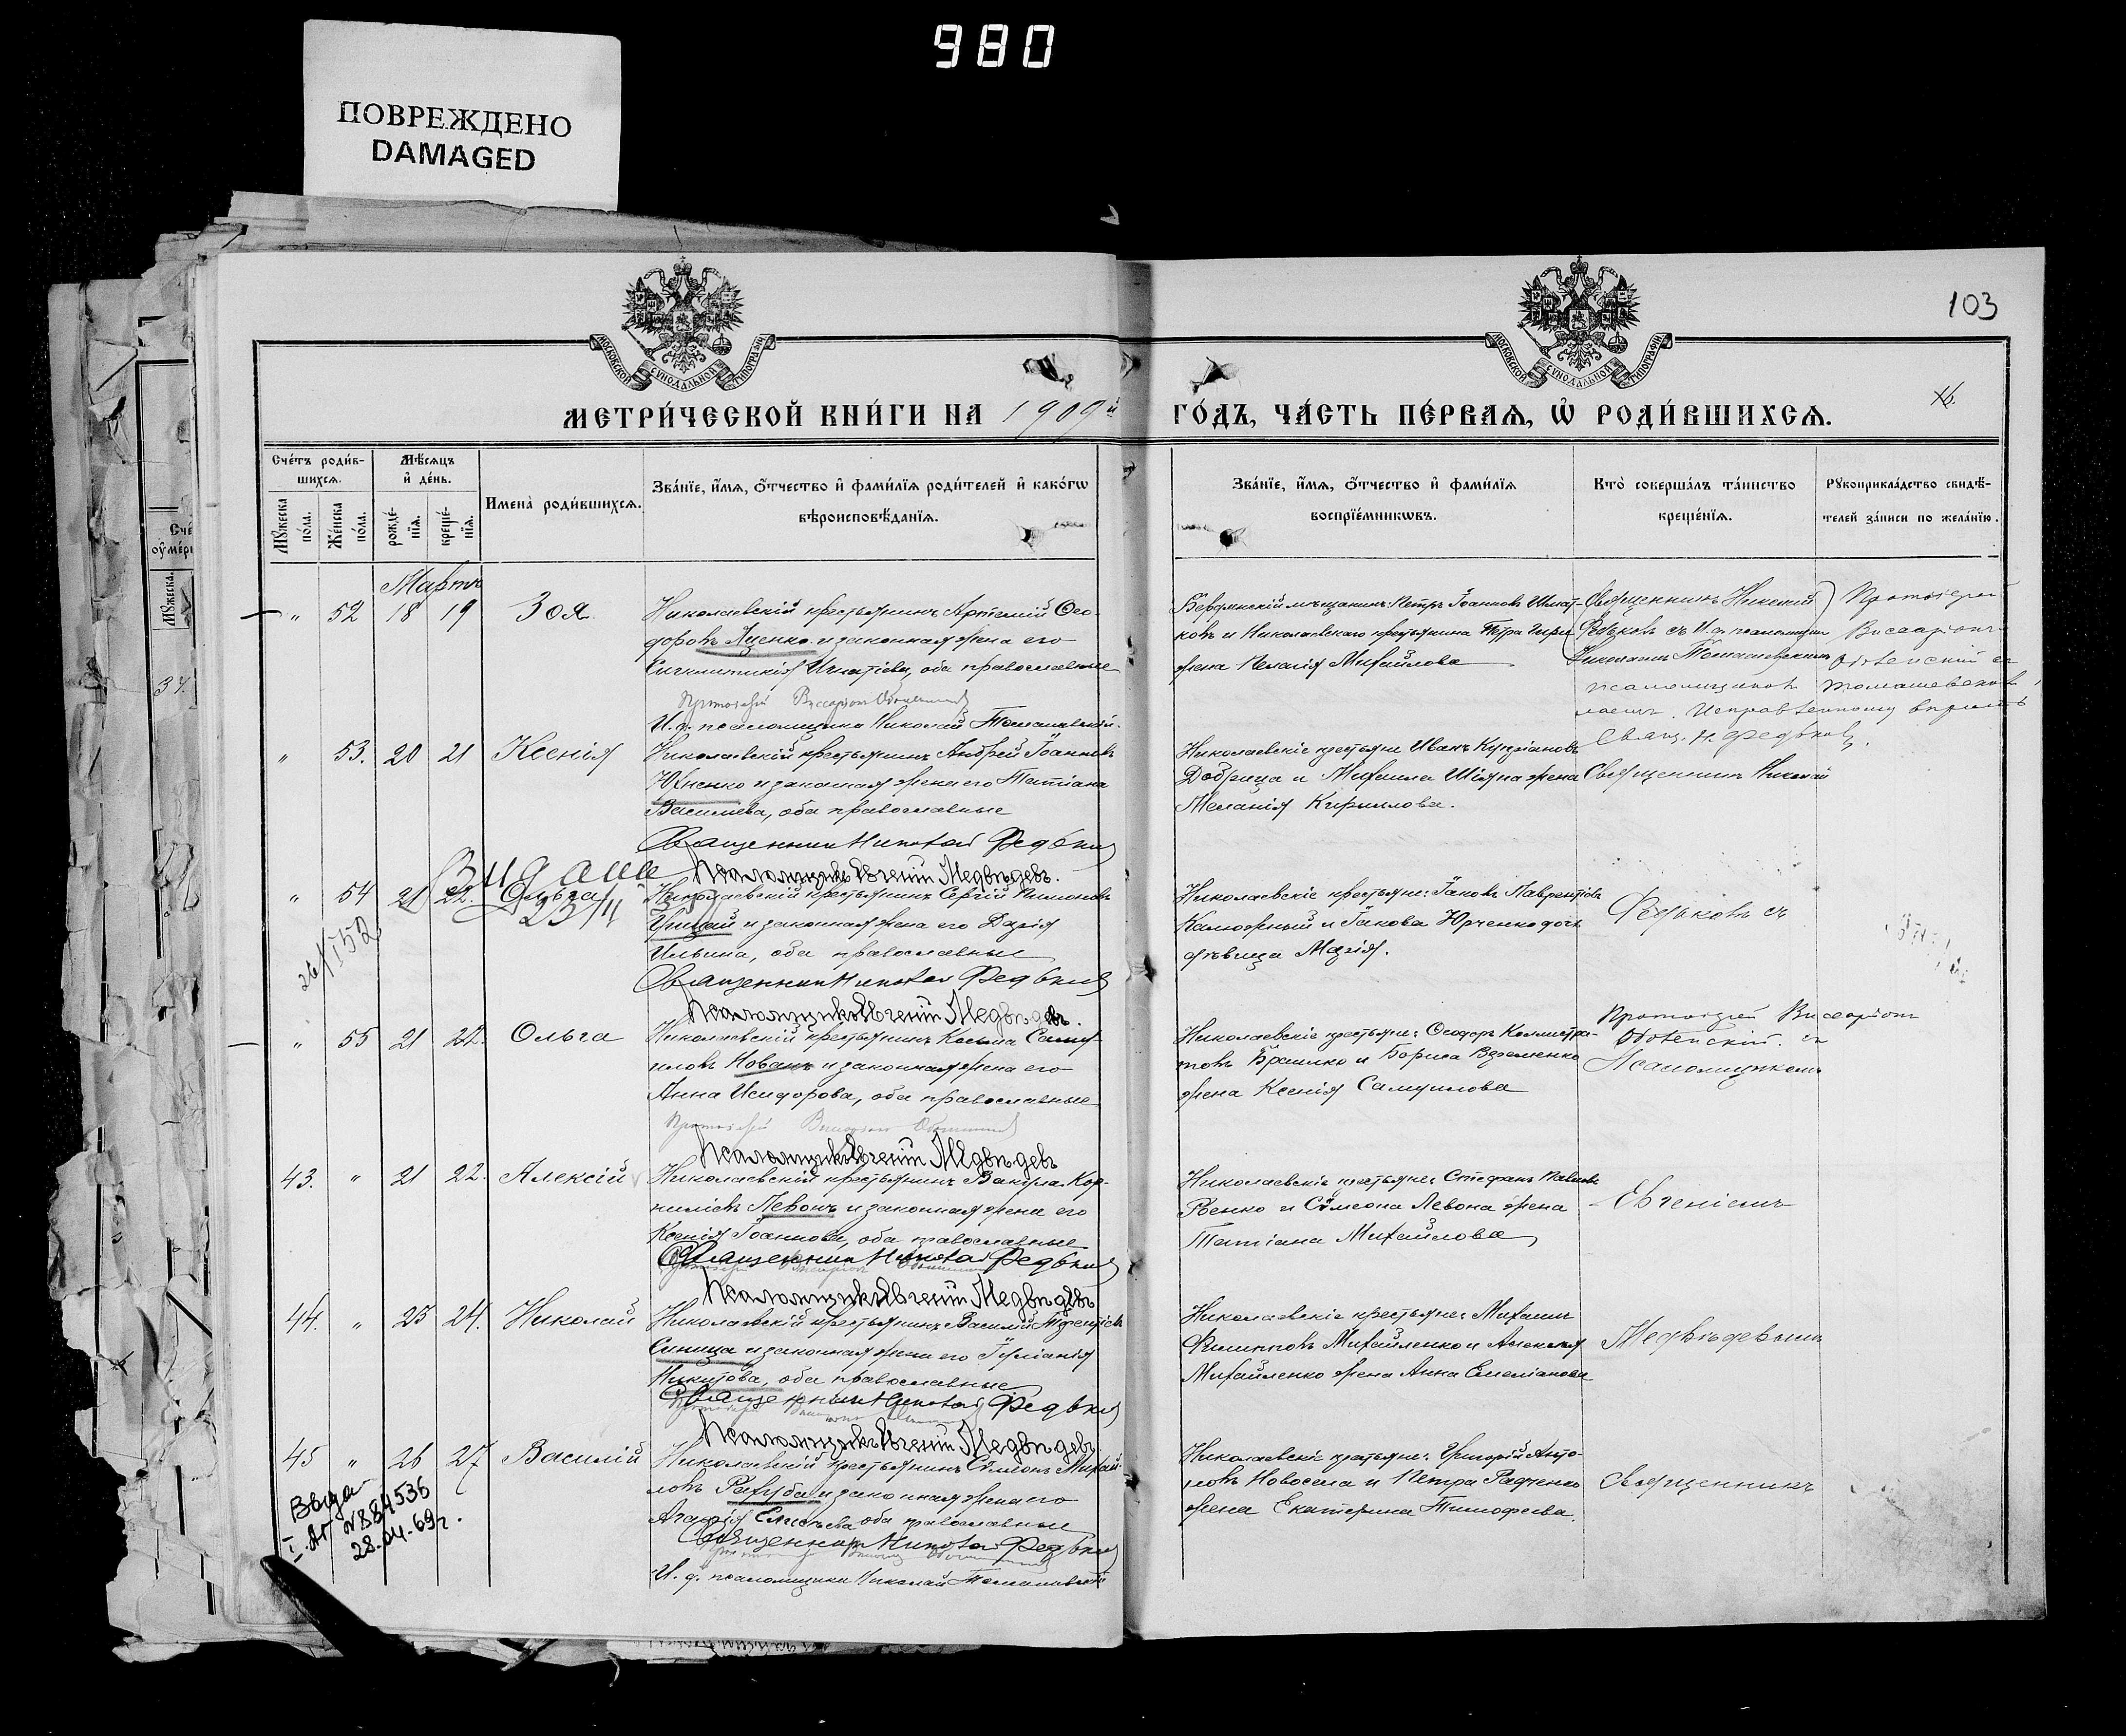 980
ПОВРЕЖДЕНО
DAMAGED
103
МОСКОВСКОЙ СѴНОДАЛЬНОЙ ТИПОГРАФІИ
МОСКОВСКОЙ СѴНОДАЛЬНОЙ ТИПОГРАФІИ
МЕТРИ́ЧЕСКОЙ КНИ́ГИ НА 1909й
ГО́ДЪ, ЧА́СТЬ ПЕ́РВАЯ, Ѡ҆ РОДИ́ВШИХСЯ.
Сче́тъ роди́в-
шихся.
Мѣ́сяцъ
и҆ де́нь.
Имена̀ роди́вшихся.
Зва́нїе, и҆́мя, ѻ҆́тчество и҆ фами́лїя роди́телей и҆ како́гѡ
вѣроисповѣ́данїя.
Мꙋ́жеска по́ла.
Же́нска по́ла.
рожде́-нїя.
креще́-нїя.
Зва́нїе, и҆́мя, ѻ҆́тчество и҆ фами́лїя
воспрїе́мникωвъ.
Кто̀ соверша́лъ та́инство
креще́нїя.
Рꙋкоприкла́дство свидѣ́-
телей за́писи по жела́нїю.
Мартъ
" 52 18 19 Зоя
Николаевскій крестьянинъ Артемій Ѳео-
доровъ Яценко и законная жена его
Игнатіева, оба православные
И. д. псаломщика Николай Томашевскій.
Бердянскій мѣщанинъ: Петръ Іоанновъ
ковъ и Николаевскаго крестьянина Петра
жена Пелагія Михайлова
Священникъ Николай
Федьковъ съ И. д. псаломщика
Николаемъ Томашевскимъ
Протоіерей
Виссаріонъ
псаломщиком Томашевским
Исправленному верить
Свящ. Н. Федьков.
" 53. 20 21 Ксенія
Николаевскій крестьянинъ Андрей Іоанновъ
и законная жена его Татіана
Васильева, оба православные
Священник Николай Федьков
Псаломщикъ Евгеній Медвѣдевъ.
Николаевскіе крестьяне Иванъ Купріановъ
Добрица и Михаила Шіяна жена
Меланія Кириллова.
Священникъ Николай
" 54 21 22. Ольга
23/4
Николаевскій крестьянинъ Сергій
Грицай и законная жена его Дарія
Ильина, оба православные
Священник Николай Федьков
Псаломщикъ Евгеній Медвѣдевъ.
Николаевскіе крестьяне: Іаковъ Лаврентіевъ
Калюжный и Іакова Юрченко дочь
дѣвица Марія.
Федьковъ съ
" 55 21 22. Ольга
Николаевскій крестьянинъ Косьма Саму-
иловъ Кованъ и законная жена его
Анна Исидорова, оба православные
Псаломщикъ Евгеній Медвѣдевъ
Николаевскіе крестьяне: Ѳеодоръ Каллистра-
товъ Ярошко и Бориса
жена Ксенія Самуилова
Протоіерей Виссаріон
Псаломщикомъ
43. " 21 22. Алексій
Николаевскій крестьянинъ Вакула Кор-
ниліевъ Левонъ и законная жена его
Ксенія Іоаннова, оба православные
Священник Николай Федьков
Псаломщикъ Евгеній Медвѣдевъ
Николаевскіе крестьяне: Стефанъ Павловъ
и Сѵмеона Левона жена
Татіана Михайлова
Евгеніемъ
44. " 23 24. Николай
Николаевскій крестьянинъ Василій Терентіевъ
Синица и законная жена его Іуліанія
Никитова, оба православные
Священник Николай Федьков
Псаломщикъ Евгеній Медвѣдевъ
Николаевскіе крестьяне: Михаилъ
Филипповъ Михайленко и Алексѣя
Михайленко жена Анна Емеліанова
Медвѣдевымъ
45 " 26 27 Василій
Николаевскій крестьянинъ Сѵмеонъ Михай-
ловъ Рагуба и законная жена его
Агафія Елисѣева оба православные
Священник Николай Федьков
И. д. псаломщика Николай Томашевскій
Николаевскіе крестьяне: Григорій Анто-
новъ Новосела и Петра Радченко
жена Екатерина Тимофеева.
Священникъ
Выдан
I-АГ №884536
28-04-69г.